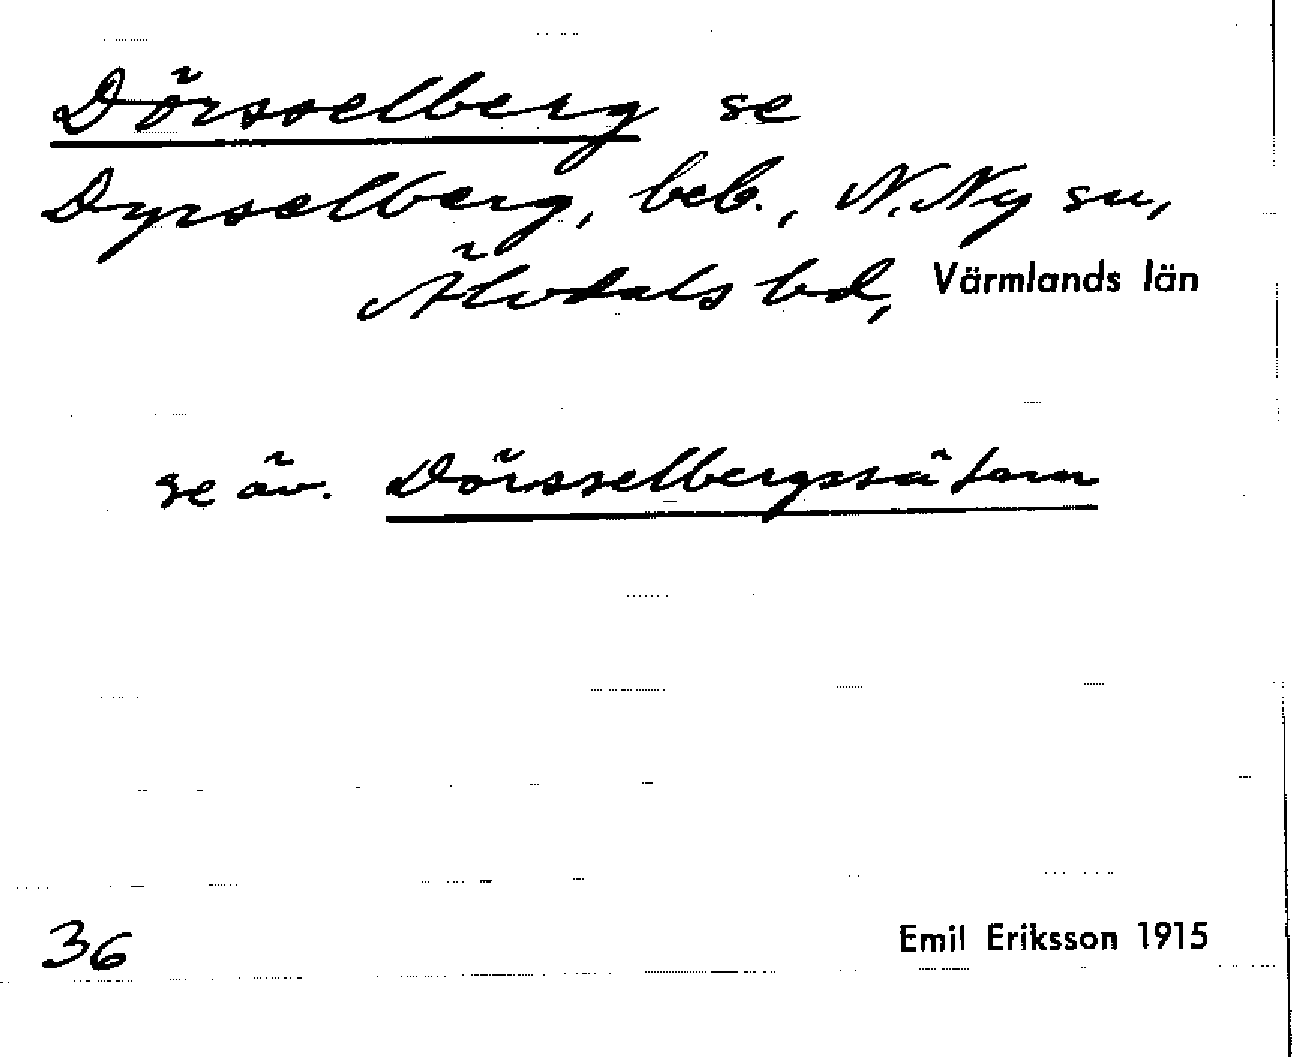 Dörsselberg se
Dyrselberg, beb., N. Ny sn,
Älvdals hd, Värmlands län
se äv. Dörsselbergssätern
36
Emil Eriksson 1915